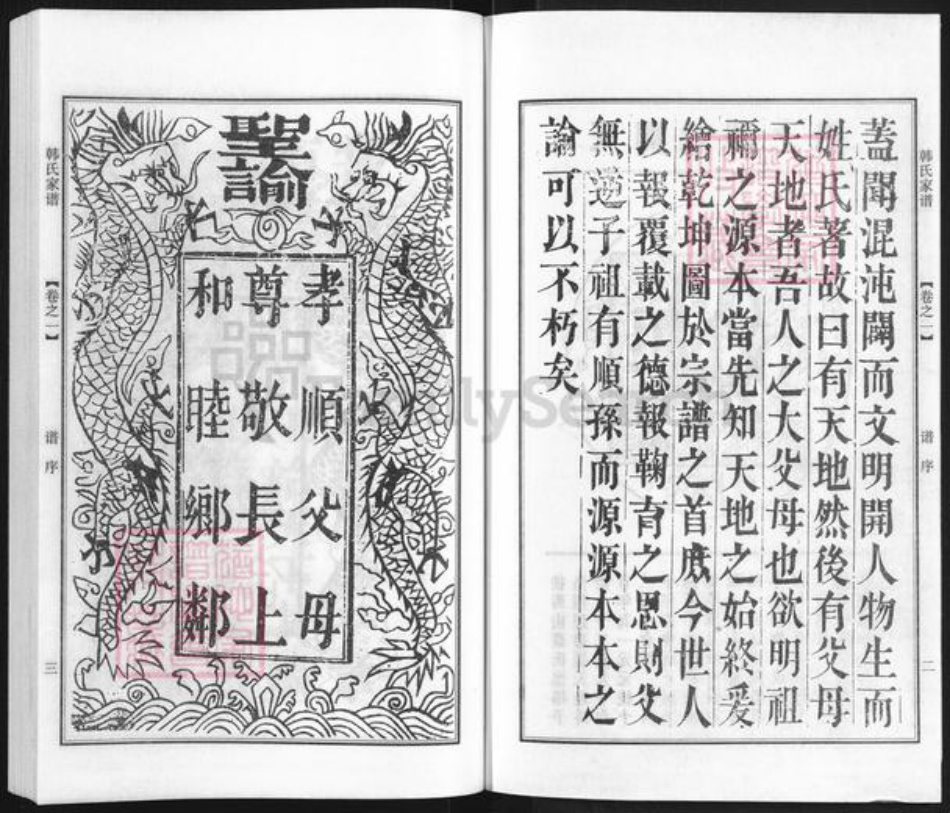 韩氏家谱
【卷之一】
谱序
二
蓋聞混沌闢而文明開人物生而
姓氏著故曰有天地然後有父母
天地者吾人之大父母也欲明祖
禰之源本當先知天地之始終爰
繪乾坤圖於宗譜之首庶今世人
以報覆載之德報鞠育之恩則父
無逆子祖有順孫而源源本本之
論可以不朽矣
聖諭
孝順父母
尊敬長上
和睦鄉鄰
韩氏家谱
【卷之一】
谱序
三